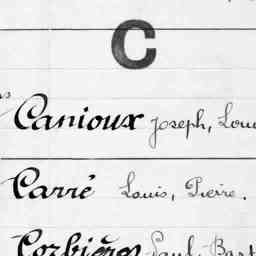 C
Canioux Joseph, Lou
Carré Louis, Pierre.
Corbières Paul, Bart